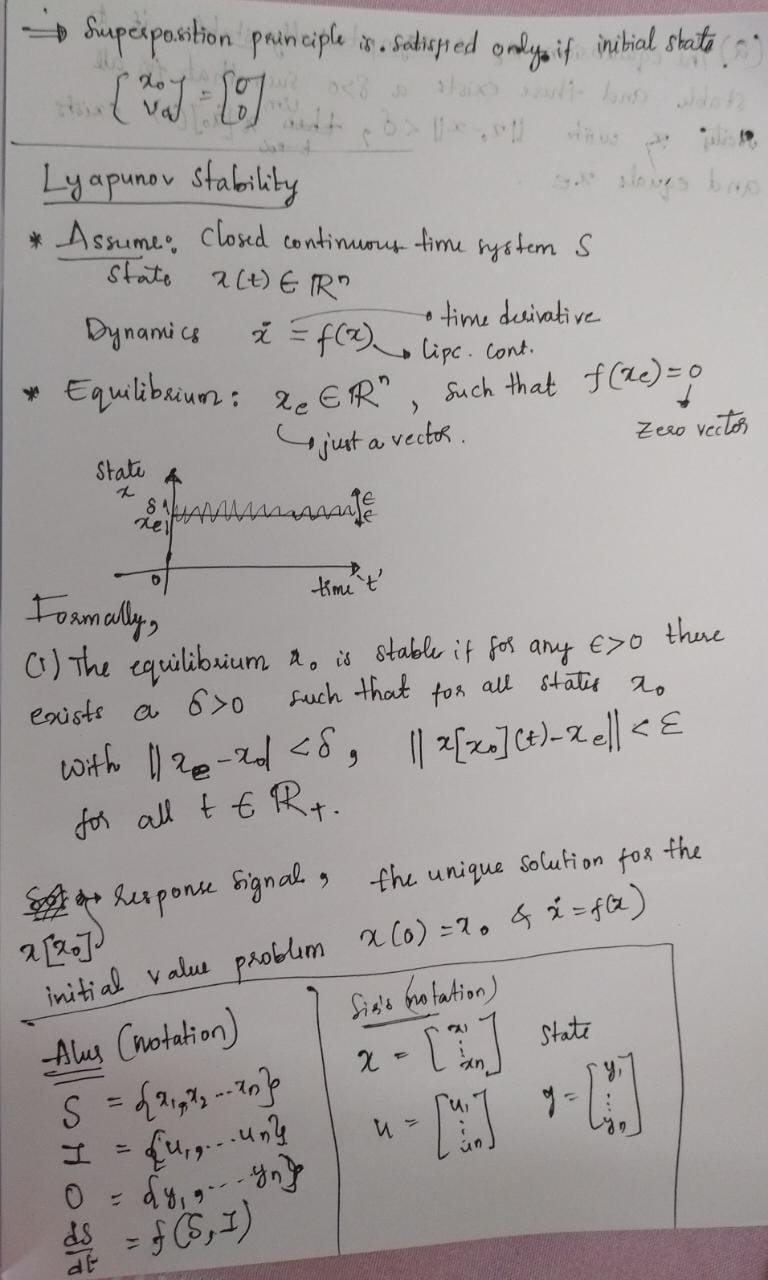 → Superposition principle is satisfied only if initial state
[x₀ v₀] = [0 0]
Lyapunov Stability
* Assume: Closed continuous time system S
State x(t) ∈ ℝⁿ
Dynamics ẋ = f(x) → time derivative
→ Lipc. Cont.
* Equilibrium: xe ∈ ℝⁿ, such that f(xe) = 0
↳ just a vector. Zero vector
State
x
δ ε
xe ε
0 time 't'
Formally,
(1) The equilibrium x₀ is stable if for any ε>0 there
exists a δ>0 such that for all states x₀
with ||xe-x₀| <δ, ||x[x₀](t)-xe|| < ε
for all t ∈ ℝ+.
→ Response Signal, the unique solution for the
x[x₀]
initial value problem x(0) = x₀ & ẋ = f(x)
Alus (notation)
S = {x₁,x₂...xn}
I = {u₁,...un}
O = {y₁,...yn}
dS/dt = f(S,I)
Sir's (notation)
x = [x₁ ⋮ xn] State
u = [u₁ ⋮ un] y = [y₁ ⋮ yn]